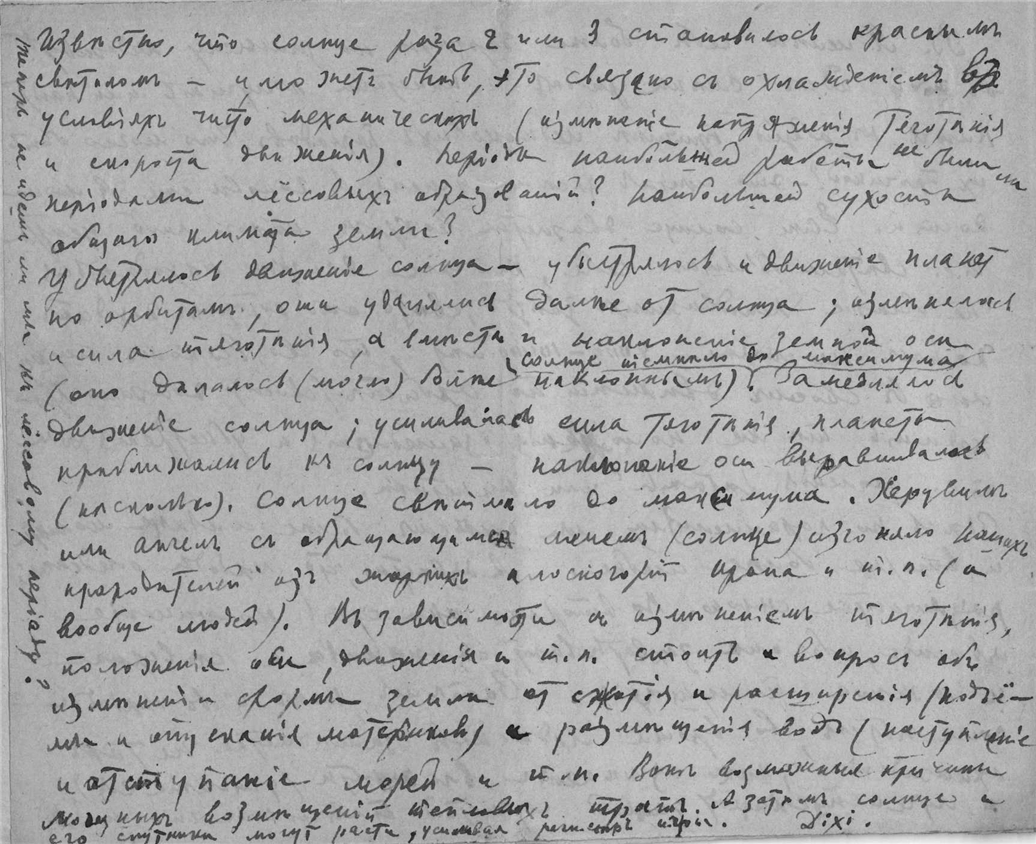 Извѣстно, что солнце раза 2 или 3 становилось краснымъ
свѣтиломъ – и, можетъ быть, это связано съ охлажденіемъ въ
условіяхъ чисто механическихъ (измѣненіе напряженія тяготѣнія
и скорости движенія). Періоды наибольшей работы не были ли
періодами лёссовыхъ образованій? Наибольшей сухости
общаго климата земли?
Убыстрялось движеніе солнца – убыстрялось и движеніе планет
по орбитамъ, они удалялись далѣе от солнца; измѣнялась
и сила тяготѣнія, а вмѣстѣ и наклоненіе земной оси
солнце тѣмнило до максимума
(оно дѣлалось (могло) болѣе наклоннымъ). Замедлялось
движеніе солнца; усиливалась сила тяготѣнія, планеты
приближались къ солнцу – наклоненіе оси выравнивалось
(нѣсколько). Солнце свѣтило до максимума. Херувимъ
или ангелъ съ обращающимся мечемъ (солнце) изгоняло нашихъ
прародителей изъ жаркихъ плоскогорій Ирана и т.п. (и
вообще людей). Въ зависимости съ измѣненіемъ тяготѣнія,
положенія оси, движенія и т.п. стоитъ и вопросъ объ
измѣненіи формы земли от сжатія и расширенія (подъё-
мы и опусканія материковъ) и размѣщенія водъ (наступленіе
и отступаніе морей и т.п. Вотъ возможныя причины
мощныхъ возмѣщеній тепловыхъ тратъ. А затѣмъ солнце и
его спутники могут расти, усиливая регистръ игры. Dixi.
теперь не идемъ ли мы къ лёссовому періоду?